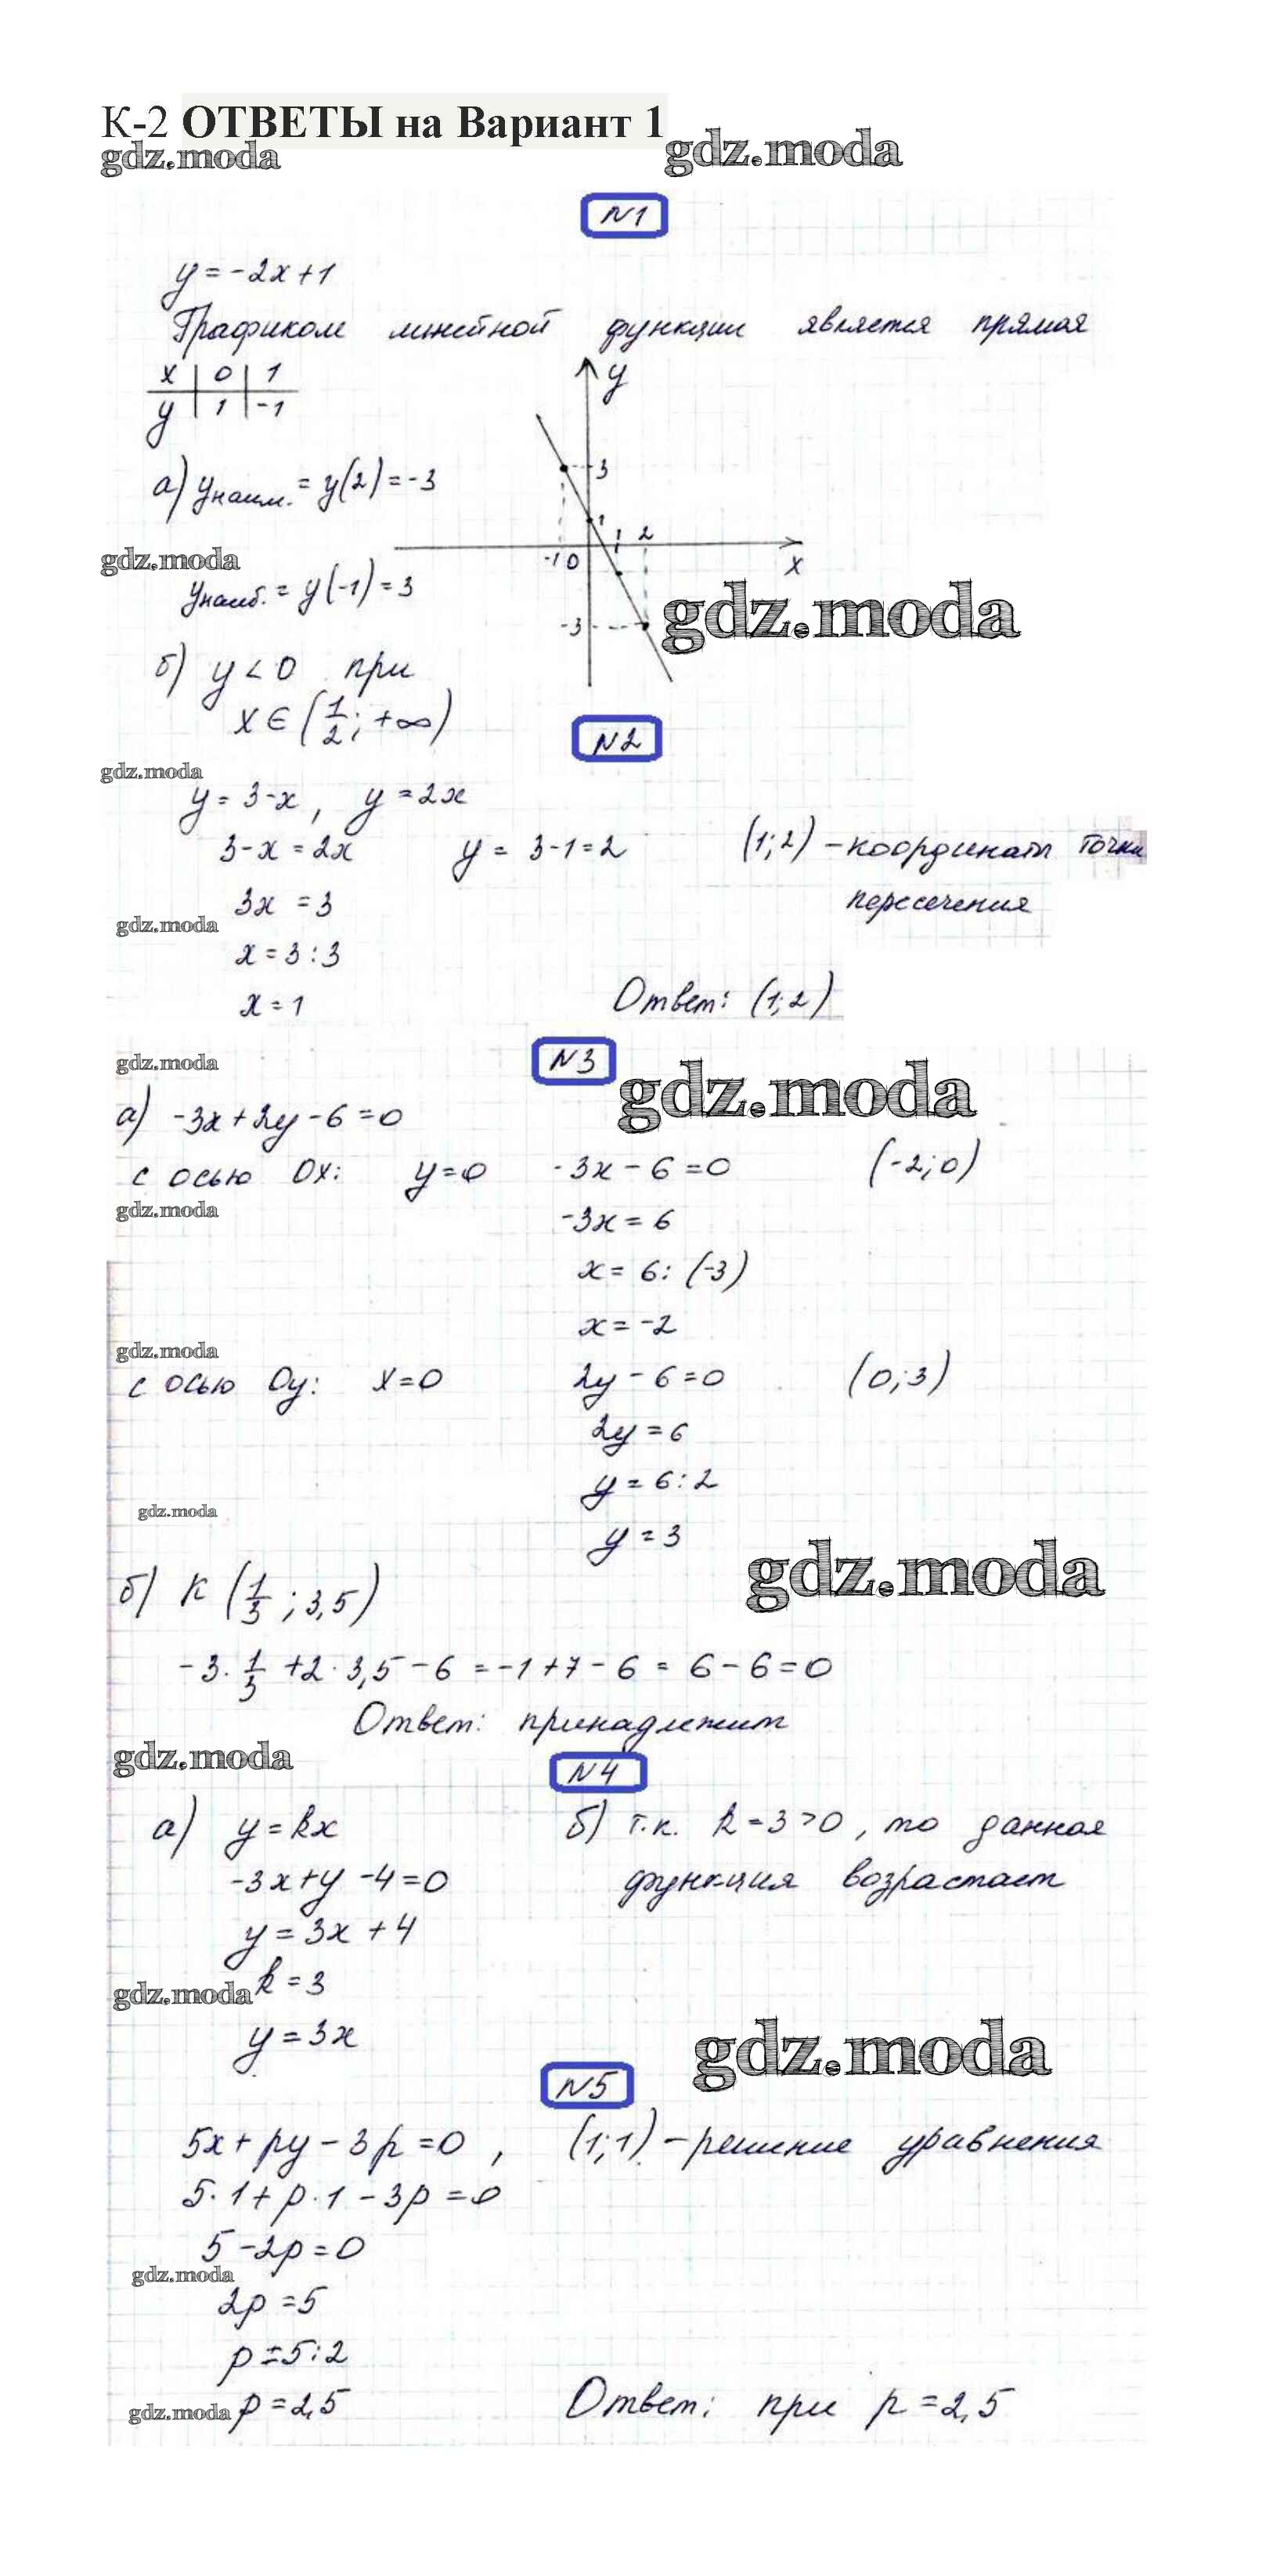 К-2 ОТВЕТЫ на Вариант 1
gdz.moda gdz.moda
N1
y = -2x + 1
Графиком линейной функции является прямая
x | 0 | 1
y | 1 | -1
y
3
1
1 2
-1 0
x
-3
а) yнаим. = y(2) = -3
gdz.moda
yнаиб. = y(-1) = 3
gdz.moda
б) y < 0 при
x ∈ (1/2; +∞)
N2
gdz.moda
y = 3-x, y = 2x
3-x = 2x y = 3-1 = 2 (1; 2) - координаты точки
3x = 3 пересечения
gdz.moda
x = 3 : 3
x = 1 Ответ: (1; 2)
N3
gdz.moda gdz.moda
а) -3x + 2y - 6 = 0
с осью Ox: y = 0 -3x - 6 = 0 (-2; 0)
gdz.moda
-3x = 6
x = 6 : (-3)
x = -2
gdz.moda
с осью Oy: x = 0 2y - 6 = 0 (0; 3)
2y = 6
y = 6 : 2
gdz.moda
y = 3
gdz.moda
б) K (1/3; 3,5)
-3 · 1/3 + 2 · 3,5 - 6 = -1 + 7 - 6 = 6 - 6 = 0
Ответ: принадлежит
gdz.moda
N4
а) y = kx б) т.к. k = 3 > 0, то данная
-3x + y - 4 = 0 функция возрастает
y = 3x + 4
k = 3
gdz.moda
y = 3x
gdz.moda
N5
5x + py - 3p = 0, (1; 1) - решение уравнения
5 · 1 + p · 1 - 3p = 0
5 - 2p = 0
gdz.moda
2p = 5
p = 5 : 2
gdz.moda p = 2,5 Ответ: при p = 2,5